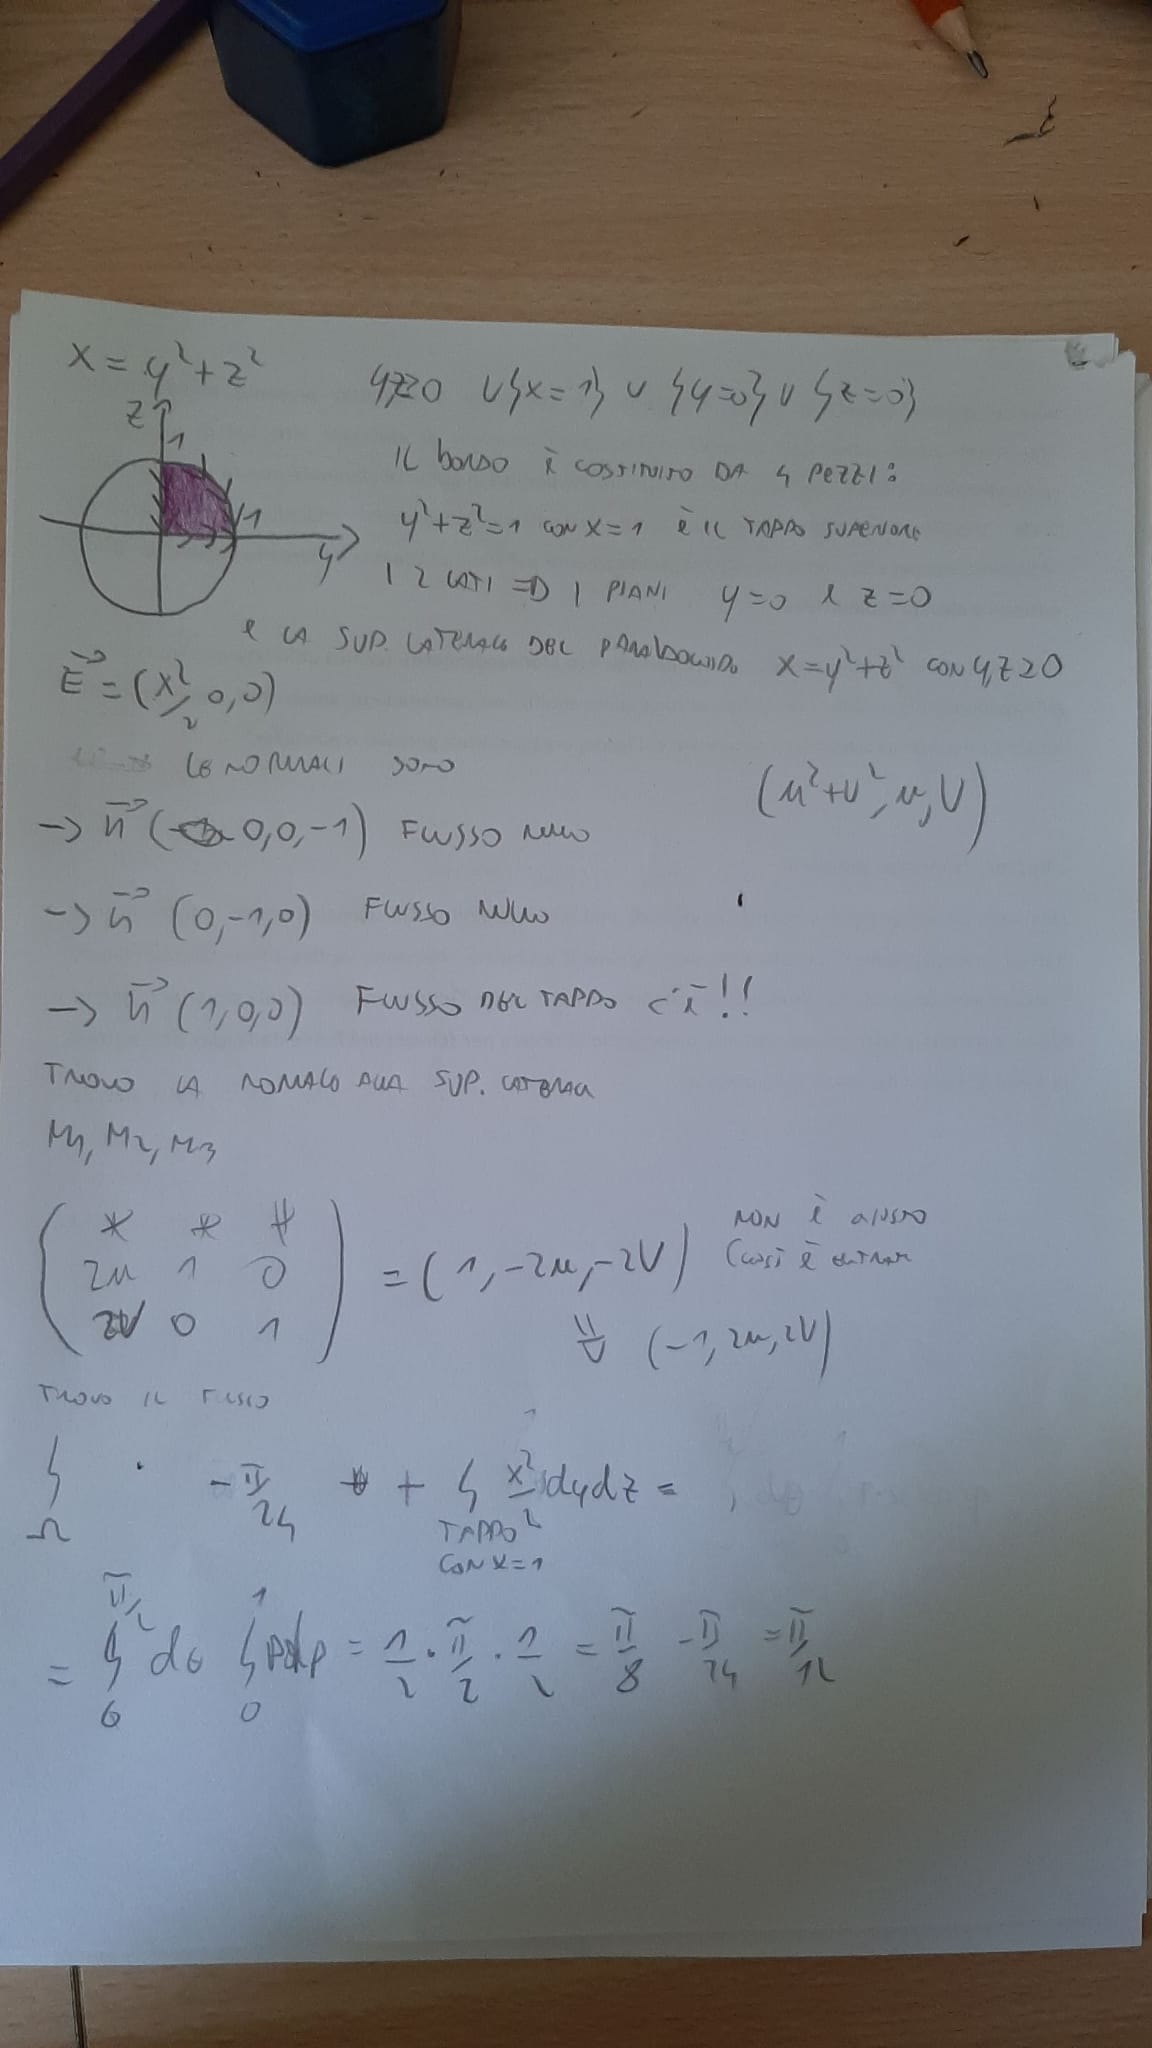 x = y² + z²
y,z≥0 ∪{x=1} ∪ {y=0} ∪ {z=0}
z
1
1
y
IL BORDO È COSTITUITO DA 4 PEZZI:
y²+z²=1 CON x=1 È IL TAPPO SUPERIORE
I 2 LATI => I PIANI y=0 e z=0
e LA SUP. LATERALE DEL PARABOLOIDE x=y²+z² CON y,z≥0
E = (x²/2, 0, 0)
LE NORMALI SONO
(u²+v², u, v)
→ n (0,0,-1) FLUSSO NULLO
→ n (0,-1,0) FLUSSO NULLO
→ n (1,0,0) FLUSSO DEL TAPPO C'È!!
TROVO LA NORMALE ALLA SUP. LATERALE
M1, M2, M3
* * *
2u 1 0
2v 0 1
= (1, -2u, -2v) NON È GIUSTO
(così È ENTRANTE
⇓ (-1, 2u, 2v)
TROVO IL FLUSSO
∫Ω -π/24 + ∫ x²/2 dydz =
TAPPO
CON x=1
= ∫₀^(π/2) dθ ∫₀¹ ρdρ = 1/2 · π/2 · 1/2 = π/8 - π/24 = π/12